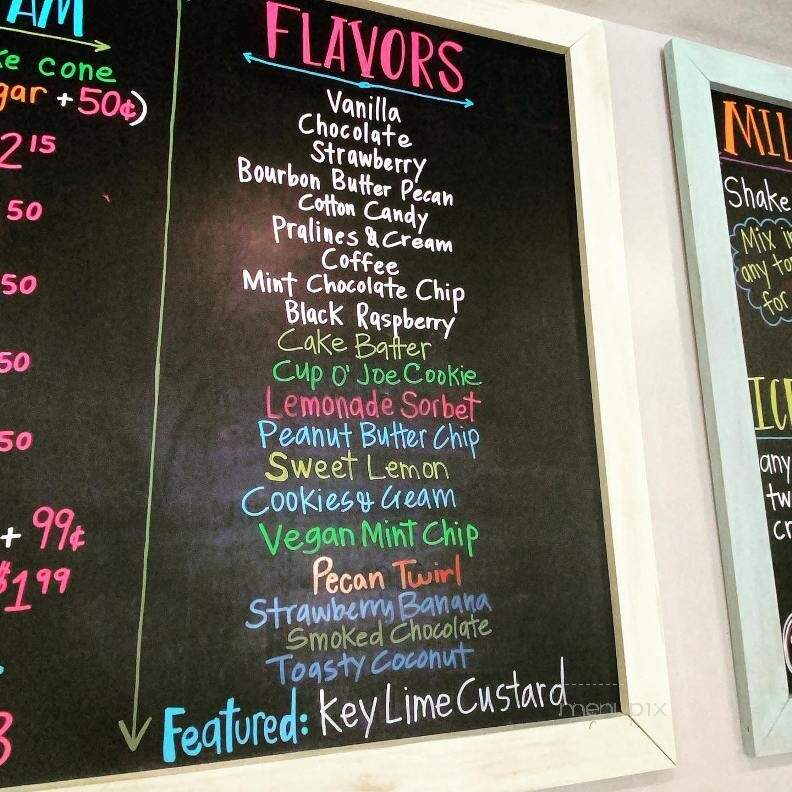 AM
ke cone
gar +50¢)
215
50
50
50
50
+ 99¢
$1 99
3
FLAVORS
Vanilla
Chocolate
Strawberry
Bourbon Butter Pecan
Cotton Candy
Pralines & Cream
Coffee
Mint Chocolate Chip
Black Raspberry
Cake Batter
Cup O' Joe Cookie
Lemonade Sorbet
Peanut Butter Chip
Sweet Lemon
Cookies & Cream
Vegan Mint Chip
Pecan Twirl
Strawberry Banana
Smoked Chocolate
Toasty Coconut
Featured: Key Lime Custard
menupix
MIL
Shake
Mix in
any to
for
ICE
any
tw
cr